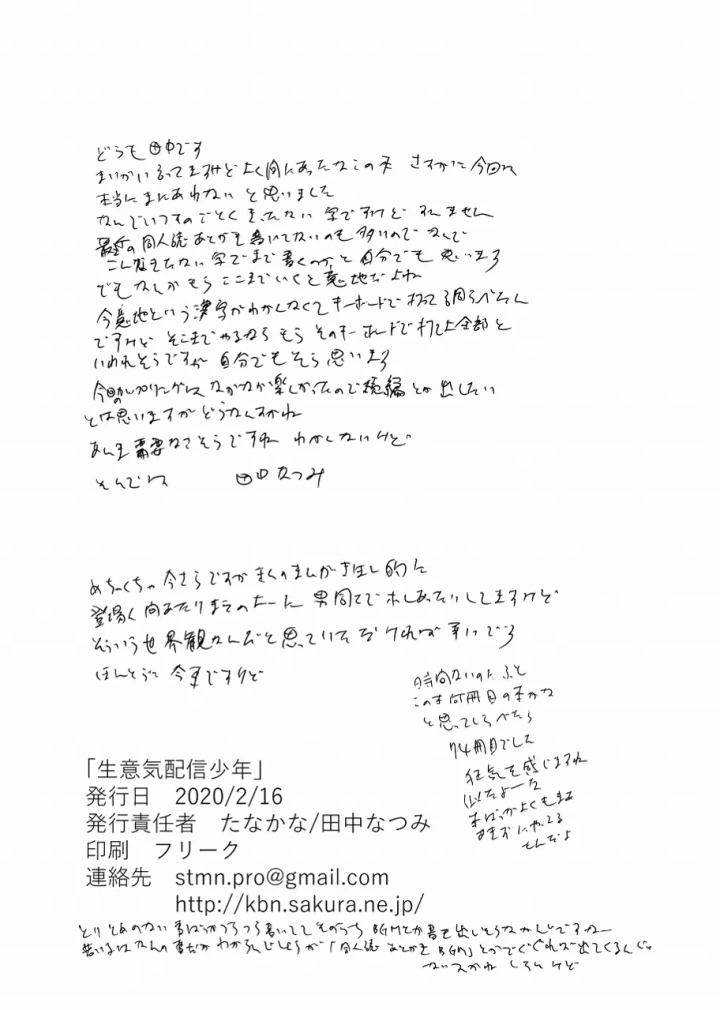 どうも田中です
まいかい言ってますけどよく間にあったなこの本 さすがに今回は
本当にまにあわないと思いました
なんでいつものごとくきったない字ですけどすいません
最近の同人誌あとがき書いてないのも多いのでなんで
こんなきたない字でまで書くのか、と自分でも思います
でもなんかもうここまでいくと意地だよね
今意地という漢字がわかんなくてキーボードで打って調べたん
ですけどそこまでやるならもうそのキーボードで打てよ全部と
いわれそうですが自分でもそう思います
今回のカップリングはなかなか楽しかったので続編とか出したい
とは思いますがどうなんすかね
あんま需要なさそうですね わかんないけど
そんでは 田中なつみ
めちゃくちゃ今さらですがぼくのまんが基本的に
登場 男同士で しますけど
そういう世界観なんだと思っていただければ幸いです
ほんとうに今更ですけど
時間ないのにふと
この本何冊目の本かな
と思ってしらべたら
74冊目でした
狂気を感じますね
似たよーな
本ばっかよくもまあ
あきずにやってる
もんだよ
「生意気配信少年」
発行日 2020/2/16
発行責任者 たなかな/田中なつみ
印刷 フリーク
連絡先 stmn.pro@gmail.com
http://kbn.sakura.ne.jp/
とりとめのない事ばかりつらつら書いててそのうちBGMとか書き出しそうなかんじですねー
若い人はなんの事だかわからんでしょうが「同人誌 あとがき BGM」とかでぐぐれば出てくるんじゃ
ないすかね しらんけど